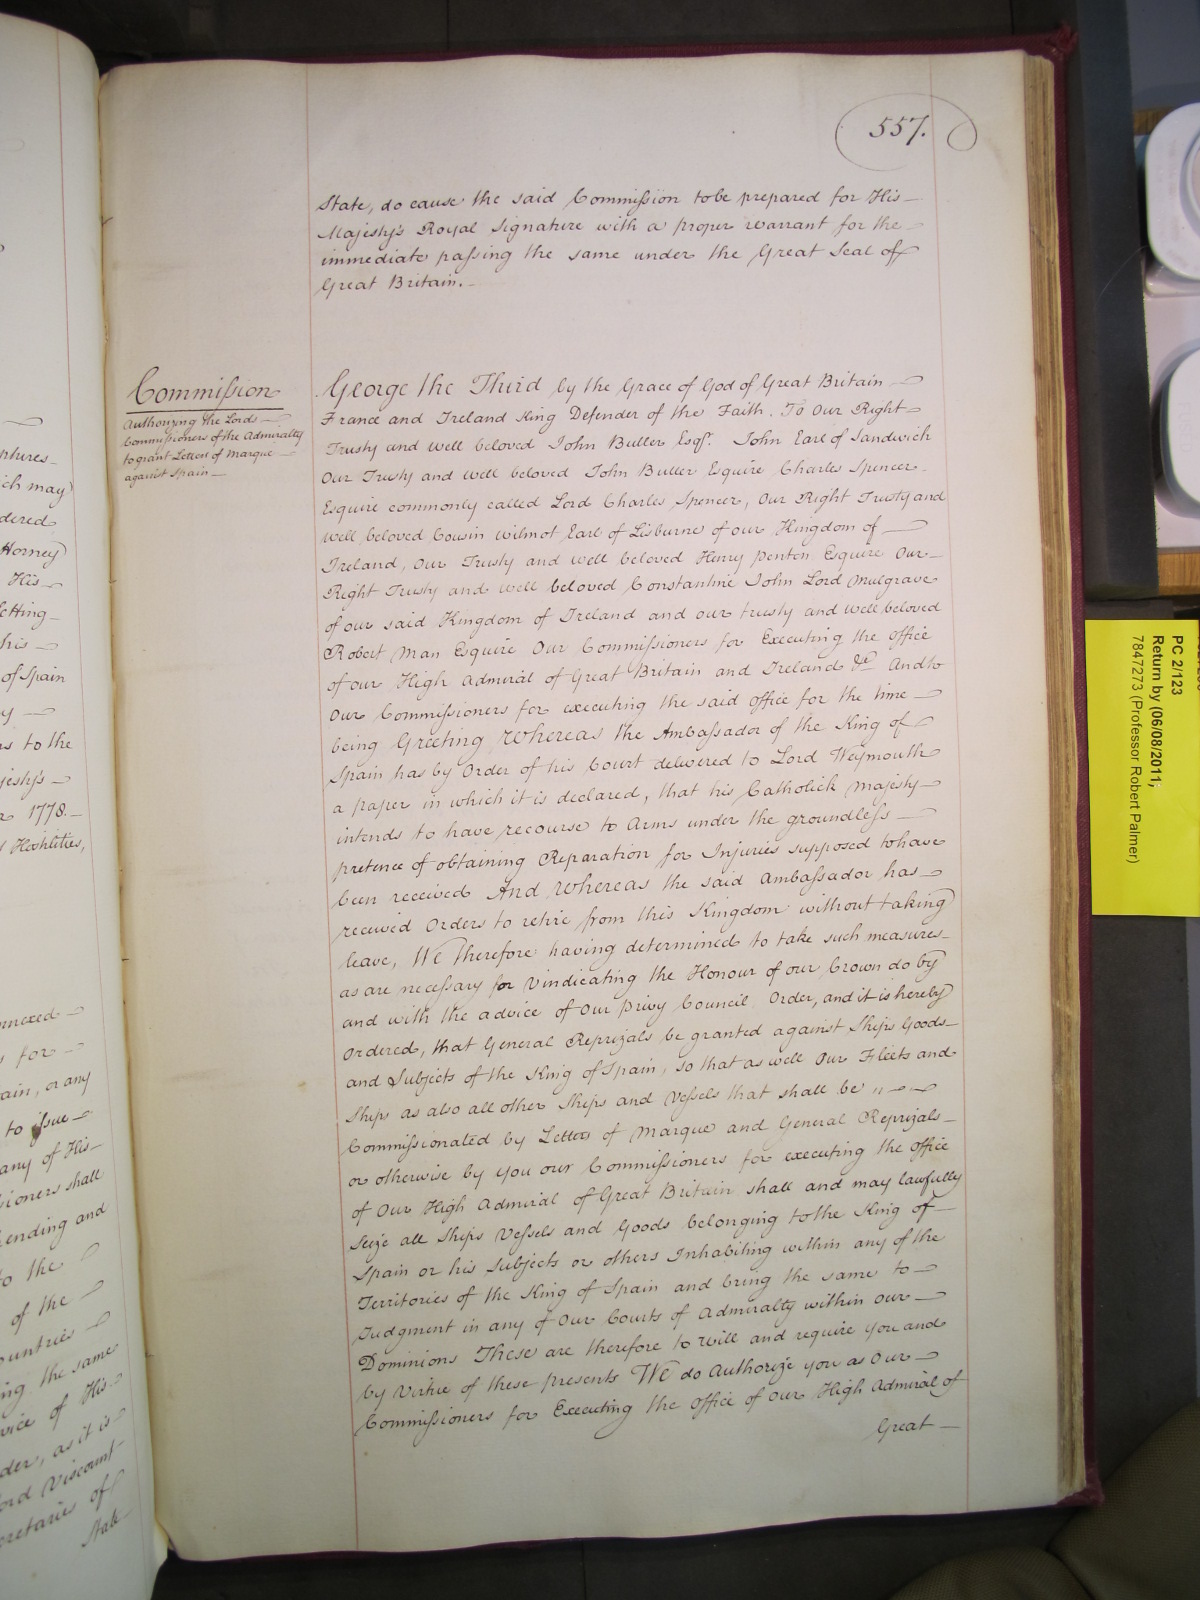 557.
State, do cause the said Commission to be prepared for His
Majesty's Royal Signature with a proper warrant for the
immediate passing the same under the Great Seal of
Great Britain.
Commission
Authorizing the Lords
Commissioners of the Admiralty
to grant Letters of Marque
against Spain
George the Third by the Grace of God of Great Britain
France and Ireland King Defender of the Faith. To Our Right
Trusty and well beloved John Buller Esqr. John Earl of Sandwich
Our Trusty and well beloved John Buller Esquire Charles Spencer
Esquire commonly called Lord Charles Spencer, Our Right Trusty and
well beloved Cousin Wilmot Earl of Lisburne of our Kingdom of
Ireland, Our Trusty and well beloved Henry Penton Esquire Our
Right Trusty and well beloved Constantine John Lord Mulgrave
of our said Kingdom of Ireland and our trusty and well beloved
Robert Man Esquire Our Commissioners for Executing the office
of our High Admiral of Great Britain and Ireland &c. And to
Our Commissioners for executing the said office for the time
being Greeting Whereas the Ambassador of the King of
Spain has by Order of his Court delivered to Lord Weymouth
a paper in which it is declared, that his Catholick Majesty
intends to have recourse to Arms under the groundless
pretence of obtaining Reparation for Injuries supposed to have
been received And Whereas the said Ambassador has
received Orders to retire from this Kingdom without taking
leave, We Therefore having determined to take such measures
as are necessary for Vindicating the Honour of our Crown do by
and with the advice of Our Privy Council Order, and it is hereby
Ordered, that General Reprizals be granted against Ships Goods
and Subjects of the King of Spain, so that as well Our Fleets and
Ships as also all other Ships and Vessels that shall be
Commissionated by Letters of Marque and General Reprizals
or otherwise by you our Commissioners for executing the Office
of Our High Admiral of Great Britain shall and may lawfully
Seize all Ships Vessels and Goods belonging to the King of
Spain or his Subjects or others Inhabiting within any of the
Territories of the King of Spain and bring the same to
Judgment in any of Our Courts of Admiralty within Our
Dominions These are therefore to will and require you and
by Virtue of these presents We do Authorize you as Our
Commissioners for Executing the Office of our High Admiral of
Great
PC 2/123
Return by (06/08/2011;
7847273 (Professor Robert Palmer)